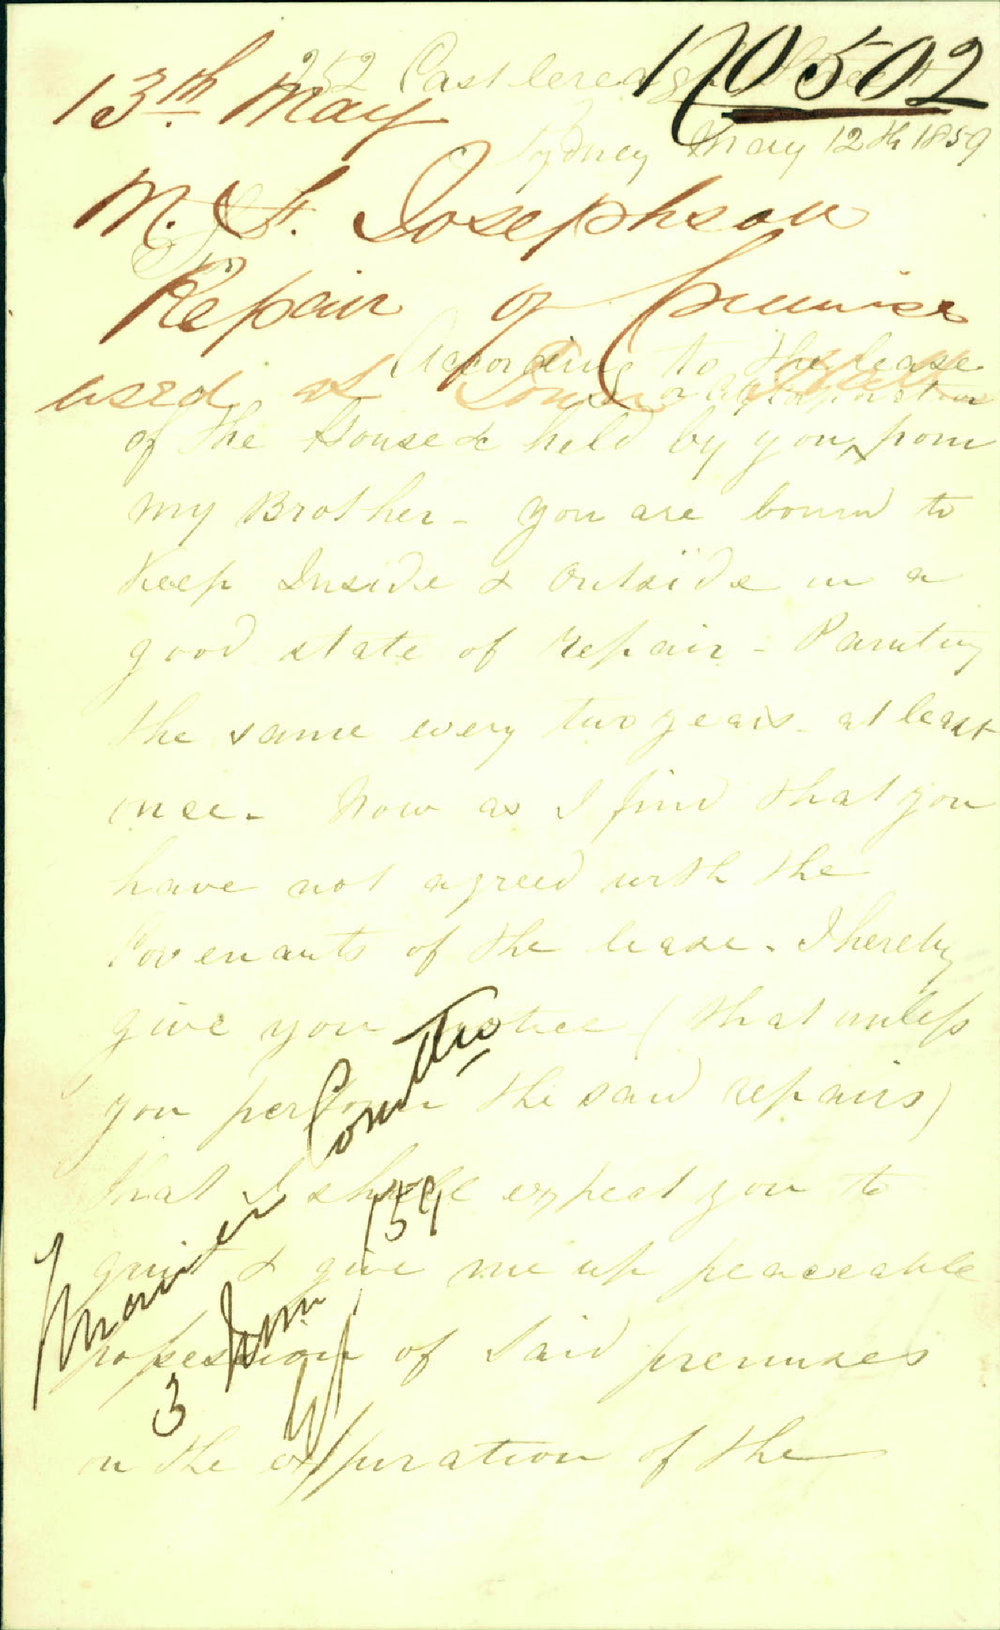 252 Castlereagh Street
No 502
13th May
Sydney May 12th 1859
M. F. Josephson
Sir
Repair of Premises
According to the lease
used as Town Hall
of the House & held by you from
my Brother - you are bound to
Keep Inside & Outside in a
good state of Repair - Painting
the same every two years - at least
once - Now as I find that you
have not agreed with the
Covenants of the lease - I hereby
give you notice (that unless
you perform the said repairs)
that I shall expect you to
quit & give me up peaceable
possession of said premises
on the expiration of the
Finance Committee
3 June /59